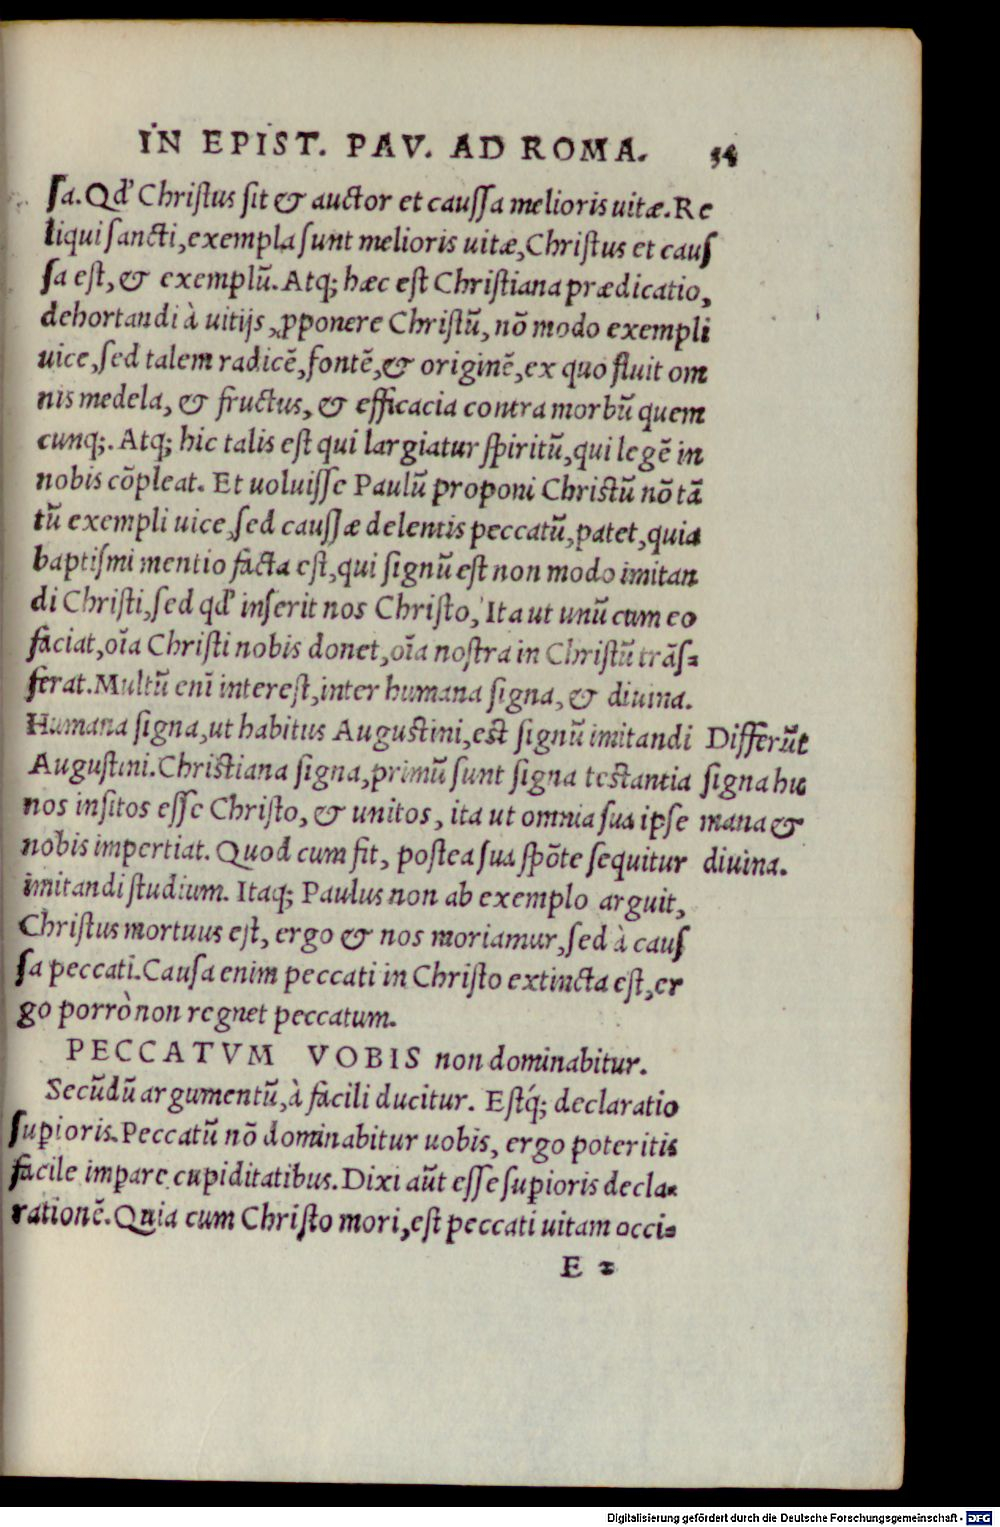 IN EPIST. PAV. AD ROMA. 34
ſa. Qd' Chriſtus ſit & auctor et cauſſa melioris uitæ. Re
liqui ſancti, exempla ſunt melioris uitæ, Chriſtus et cauſ
ſa eſt, & exemplũ. Atq; hæc eſt Chriſtiana prædicatio,
dehortandi à uitijs, ꝓponere Chriſtũ, nõ modo exempli
uice, ſed talem radicẽ, fontẽ, & originẽ, ex quo fluit om
nis medela, & fructus, & efficacia contra morbũ quem
cunq;. Atq; hic talis eſt qui largiatur ſpiritũ, qui legẽ in
nobis cõpleat. Et uoluiſſe Paulũ proponi Chriſtũ nõ tã
tũ exempli uice, ſed cauſſæ delentis peccatũ, patet, quia
baptiſmi mentio facta eſt, qui ſignũ eſt non modo imitan
di Chriſti, ſed qd' inſerit nos Chriſto, Ita ut unũ cum eo
faciat, oĩa Chriſti nobis donet, oĩa noſtra in Chriſtũ trãſ-
ferat. Multũ enĩ intereſt, inter humana ſigna, & diuina.
Humana ſigna, ut habitus Auguſtini, eſt ſignũ imitandi
Auguſtini. Chriſtiana ſigna, primũ ſunt ſigna teſtantia
nos inſitos eſſe Chriſto, & unitos, ita ut omnia ſua ipſe
nobis impertiat. Quod cum fit, poſtea ſua ſpõte ſequitur
imitandi ſtudium. Itaq; Paulus non ab exemplo arguit,
Chriſtus mortuus eſt, ergo & nos moriamur, ſed à cauſ
ſa peccati. Cauſa enim peccati in Chriſto extincta eſt, er
go porrò non regnet peccatum.
Differũt
ſigna hu
mana &
diuina.
PECCATVM VOBIS non dominabitur.
Secũdũ argumentũ, à facili ducitur. Eſtq́; declaratio
ſuꝑioris. Peccatũ nõ dominabitur uobis, ergo poteritis
facile imꝑare cupiditatibus. Dixi aũt eſſe ſuꝑioris decla-
rationẽ. Quia cum Chriſto mori, eſt peccati uitam occi-
E 2
Digitalisierung gefördert durch die Deutsche Forschungsgemeinschaft - DFG